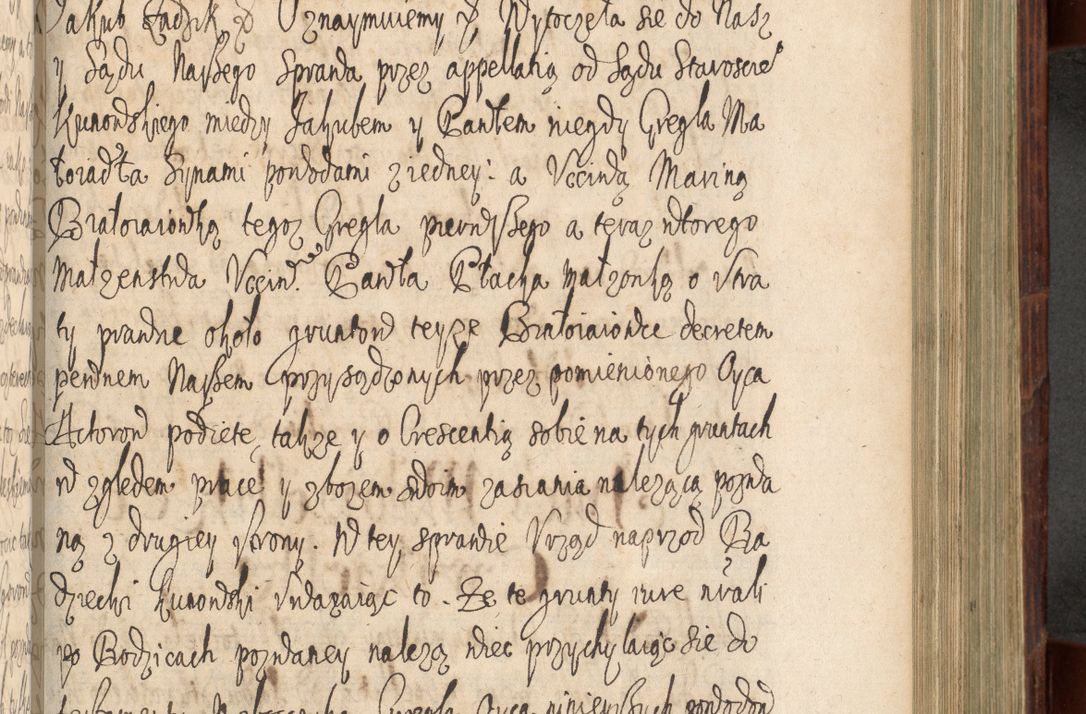 Jakub Zadzik & Oznaymuiemy & Wytoczeła sie do Nasz
y Sądu Naszego Sprawa przez appellatią od Sądu Staroscie
Kunowskiego miedzy Jakubem y Pawłem niegdy Gregla Ma
Synami powodami z iedney: a Ucciwą Maryną
tegoz Gregla pierwszego a teraz wtorego
Małzenstwa Ucciw. Pawła Płacha małzonką o Utra
ty prawne około gruntow teyze decretem
pewnem Naszem przysądzonych przez pomienionego Oyca
Actorow podięte, takze y o Crescentią sobie na tych gruntach
w zgledem prace y zbozem swoim zasiania nalezącą pozwa
ną z drugiey strony. W tey sprawie Urząd naprzod Ra
dziecki Kunowski Uwazaiąc to. Ze te grunty iure
po Rodzicach pozwaney nalezą wiec przychylaiąc sie do
Gregla Oyca ninieyszych powodow